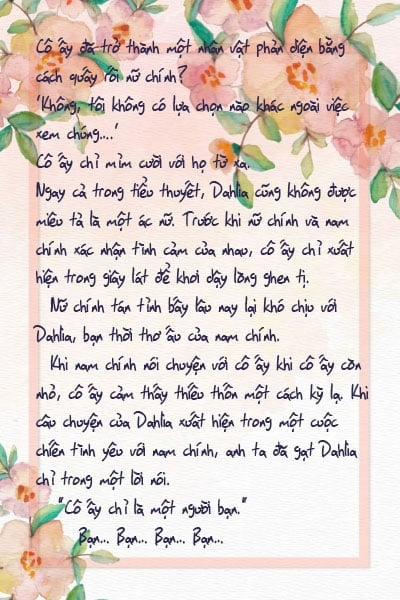 Cô ấy đã trở thành một nhân vật phản diện bằng
cách quấy rối nữ chính?
'Không, tôi không có lựa chọn nào khác ngoài việc
xem chúng....'
Cô ấy chỉ mỉm cười với họ từ xa.
Ngay cả trong tiểu thuyết, Dahlia cũng không được
miêu tả là một ác nữ. Trước khi nữ chính và nam
chính xác nhận tình cảm của nhau, cô ấy chỉ xuất
hiện trong giây lát để khơi dậy lòng ghen tị.
Nữ chính tán tỉnh bấy lâu nay lại khó chịu với
Dahlia, bạn thời thơ ấu của nam chính.
Khi nam chính nói chuyện với cô ấy khi cô ấy còn
nhỏ, cô ấy cảm thấy thiếu thốn một cách kỳ lạ. Khi
câu chuyện của Dahlia xuất hiện trong một cuộc
chiến tình yêu với nam chính, anh ta đã gạt Dahlia
chỉ trong một lời nói.
"Cô ấy chỉ là một người bạn."
Bạn... Bạn... Bạn... Bạn...